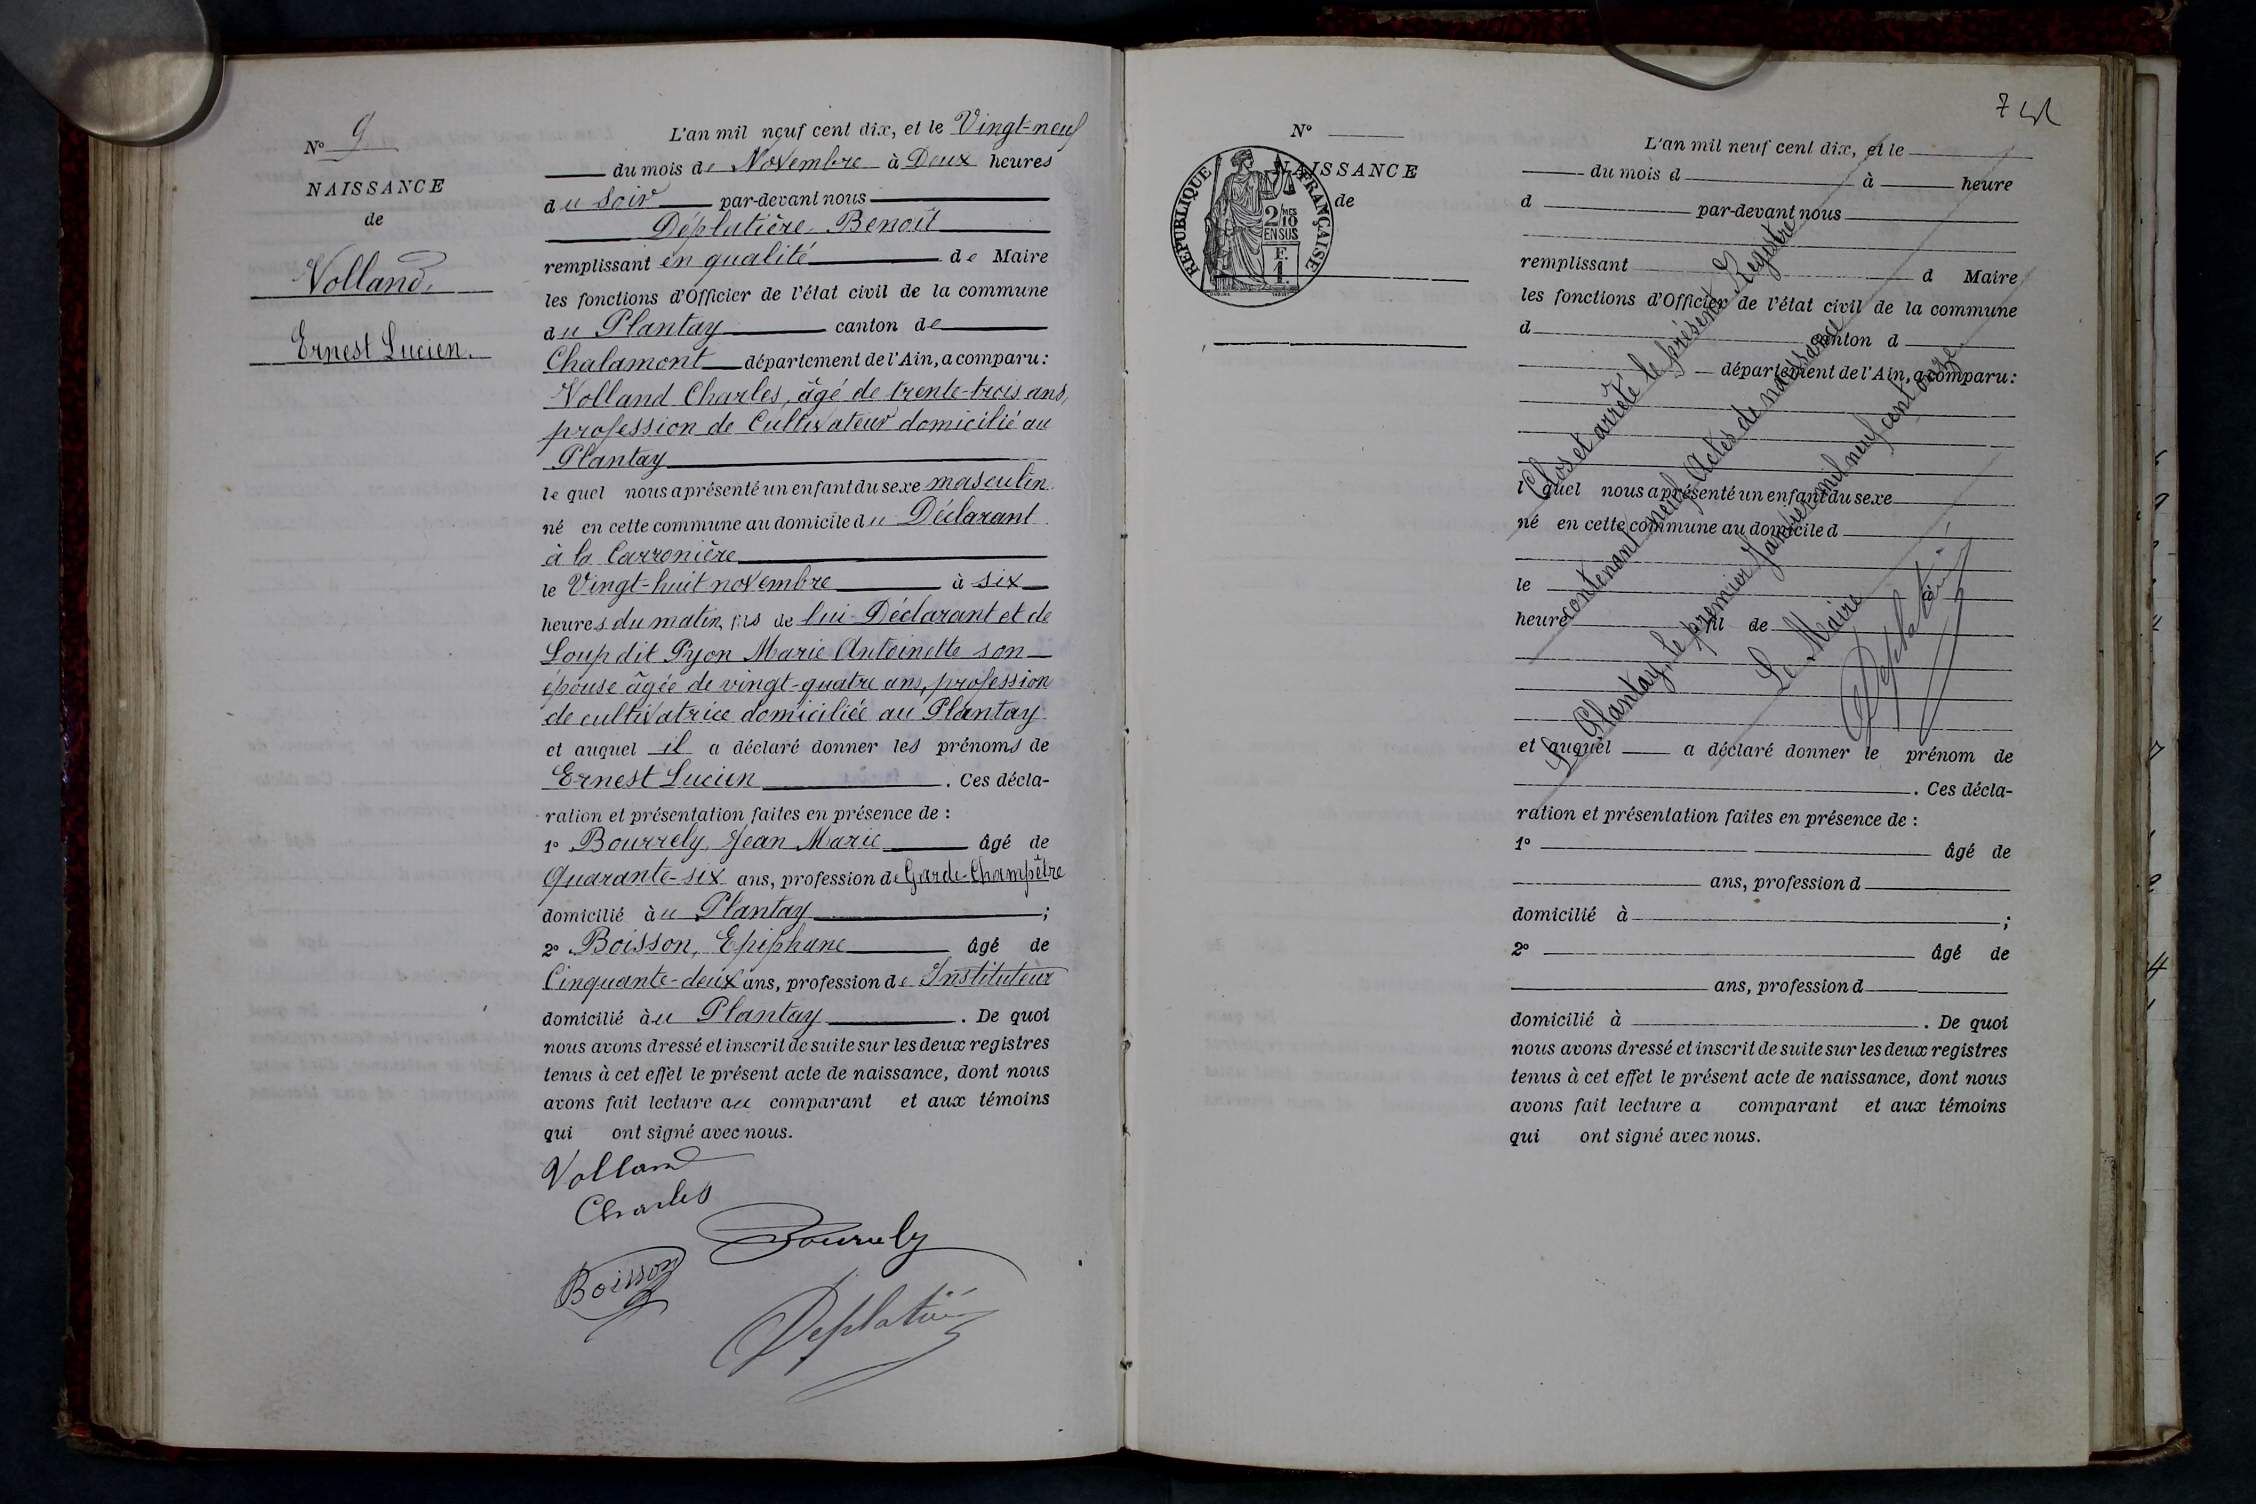 N° 9
NAISSANCE
de
Volland
Ernest Lucien.
L'an mil neuf cent dix, et le Vingt-neuf
du mois de Novembre à Deux heures
du soir par-devant nous
Déplatière Benoît
remplissant en qualité de Maire
les fonctions d'Officier de l'état civil de la commune
du Plantay canton de
Chalamont département de l'Ain, a comparu :
Volland Charles, âgé de trente-trois ans,
profession de Cultivateur domicilié au
Plantay
le quel nous a présenté un enfant du sexe masculin
né en cette commune au domicile du Déclarant
à la Carronière
le Vingt-huit novembre à six
heures du matin, fils de lui Déclarant et de
Loup dit Pyon Marie Antoinette son
épouse âgée de vingt-quatre ans, profession
de cultivatrice domiciliée au Plantay
et auquel il a déclaré donner les prénoms de
Ernest Lucien . Ces décla-
ration et présentation faites en présence de :
1° Bourrely, Jean Marie âgé de
Quarante-six ans, profession de Garde-Champêtre
domicilié àu Plantay ;
2° Boisson, Epiphane âgé de
Cinquante-deux ans, profession de Instituteur
domicilié àu Plantay . De quoi
nous avons dressé et inscrit de suite sur les deux registres
tenus à cet effet le présent acte de naissance, dont nous
avons fait lecture au comparant et aux témoins
qui ont signé avec nous.
Volland
Charles
Bourrely
Boisson
Déplatière
N°
NAISSANCE
de
RÉPUBLIQUE FRANÇAISE
2/10 MES
EN SUS
F.
1.
L'an mil neuf cent dix, et le
du mois d à heure
d par-devant nous
remplissant d Maire
les fonctions d'Officier de l'état civil de la commune
d canton d
département de l'Ain, a comparu :
l quel nous a présenté un enfant du sexe
né en cette commune au domicile d
le à
heure fil de
et auquel a déclaré donner le prénom de
. Ces décla-
ration et présentation faites en présence de :
1° âgé de
ans, profession d
domicilié à ;
2° âgé de
ans, profession d
domicilié à . De quoi
nous avons dressé et inscrit de suite sur les deux registres
tenus à cet effet le présent acte de naissance, dont nous
avons fait lecture a comparant et aux témoins
qui ont signé avec nous.
Clos et arrêté le présent Registre
contenant neuf Actes de naissance
Le Plantay, le premier Janvier mil neuf cent onze
Le Maire
Déplatière